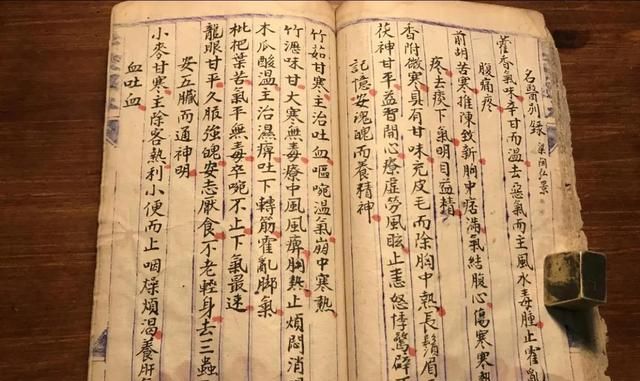 名醫別錄 梁陶弘景
藿香氣味辛甘而溫去惡氣而主風水毒腫止霍亂
腹痛疼
前胡苦寒推陳致新胸中痞滿氣結腹心傷寒寒熱
疼去痰下氣明目益精
香附微寒具有甘味充皮毛而除胸中熱長鬚眉
茯神甘平益智開心療虛勞風眩止恚怒悸驚辟不
記憶安魂魄而養精神
竹茹甘寒主治吐血嘔啘溫氣崩中寒熱
竹瀝味甘大寒無毒療中風風痹胸熱止煩悶消
木瓜酸溫主治濕痹吐下轉筋霍亂腳氣
枇杷葉苦氣平無毒卒啘不止下氣最速
龍眼甘平久服強魄安志厭食不老輕身去三蟲
安五臟而通神明
小麥甘寒主除客熱利小便而止咽燥煩渴養肝
血吐血